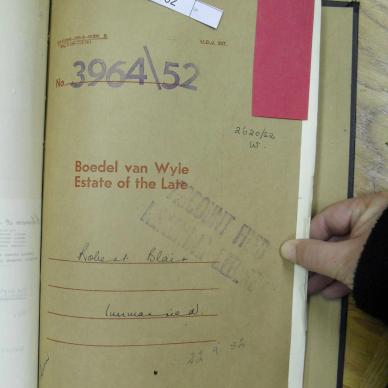 U.D.J. 251.
No. 3964\52
2620/52
W.
Boedel van Wyle
Estate of the Late
ACCOUNT FILED
Robert Blair
(unmarried)
22 9 52